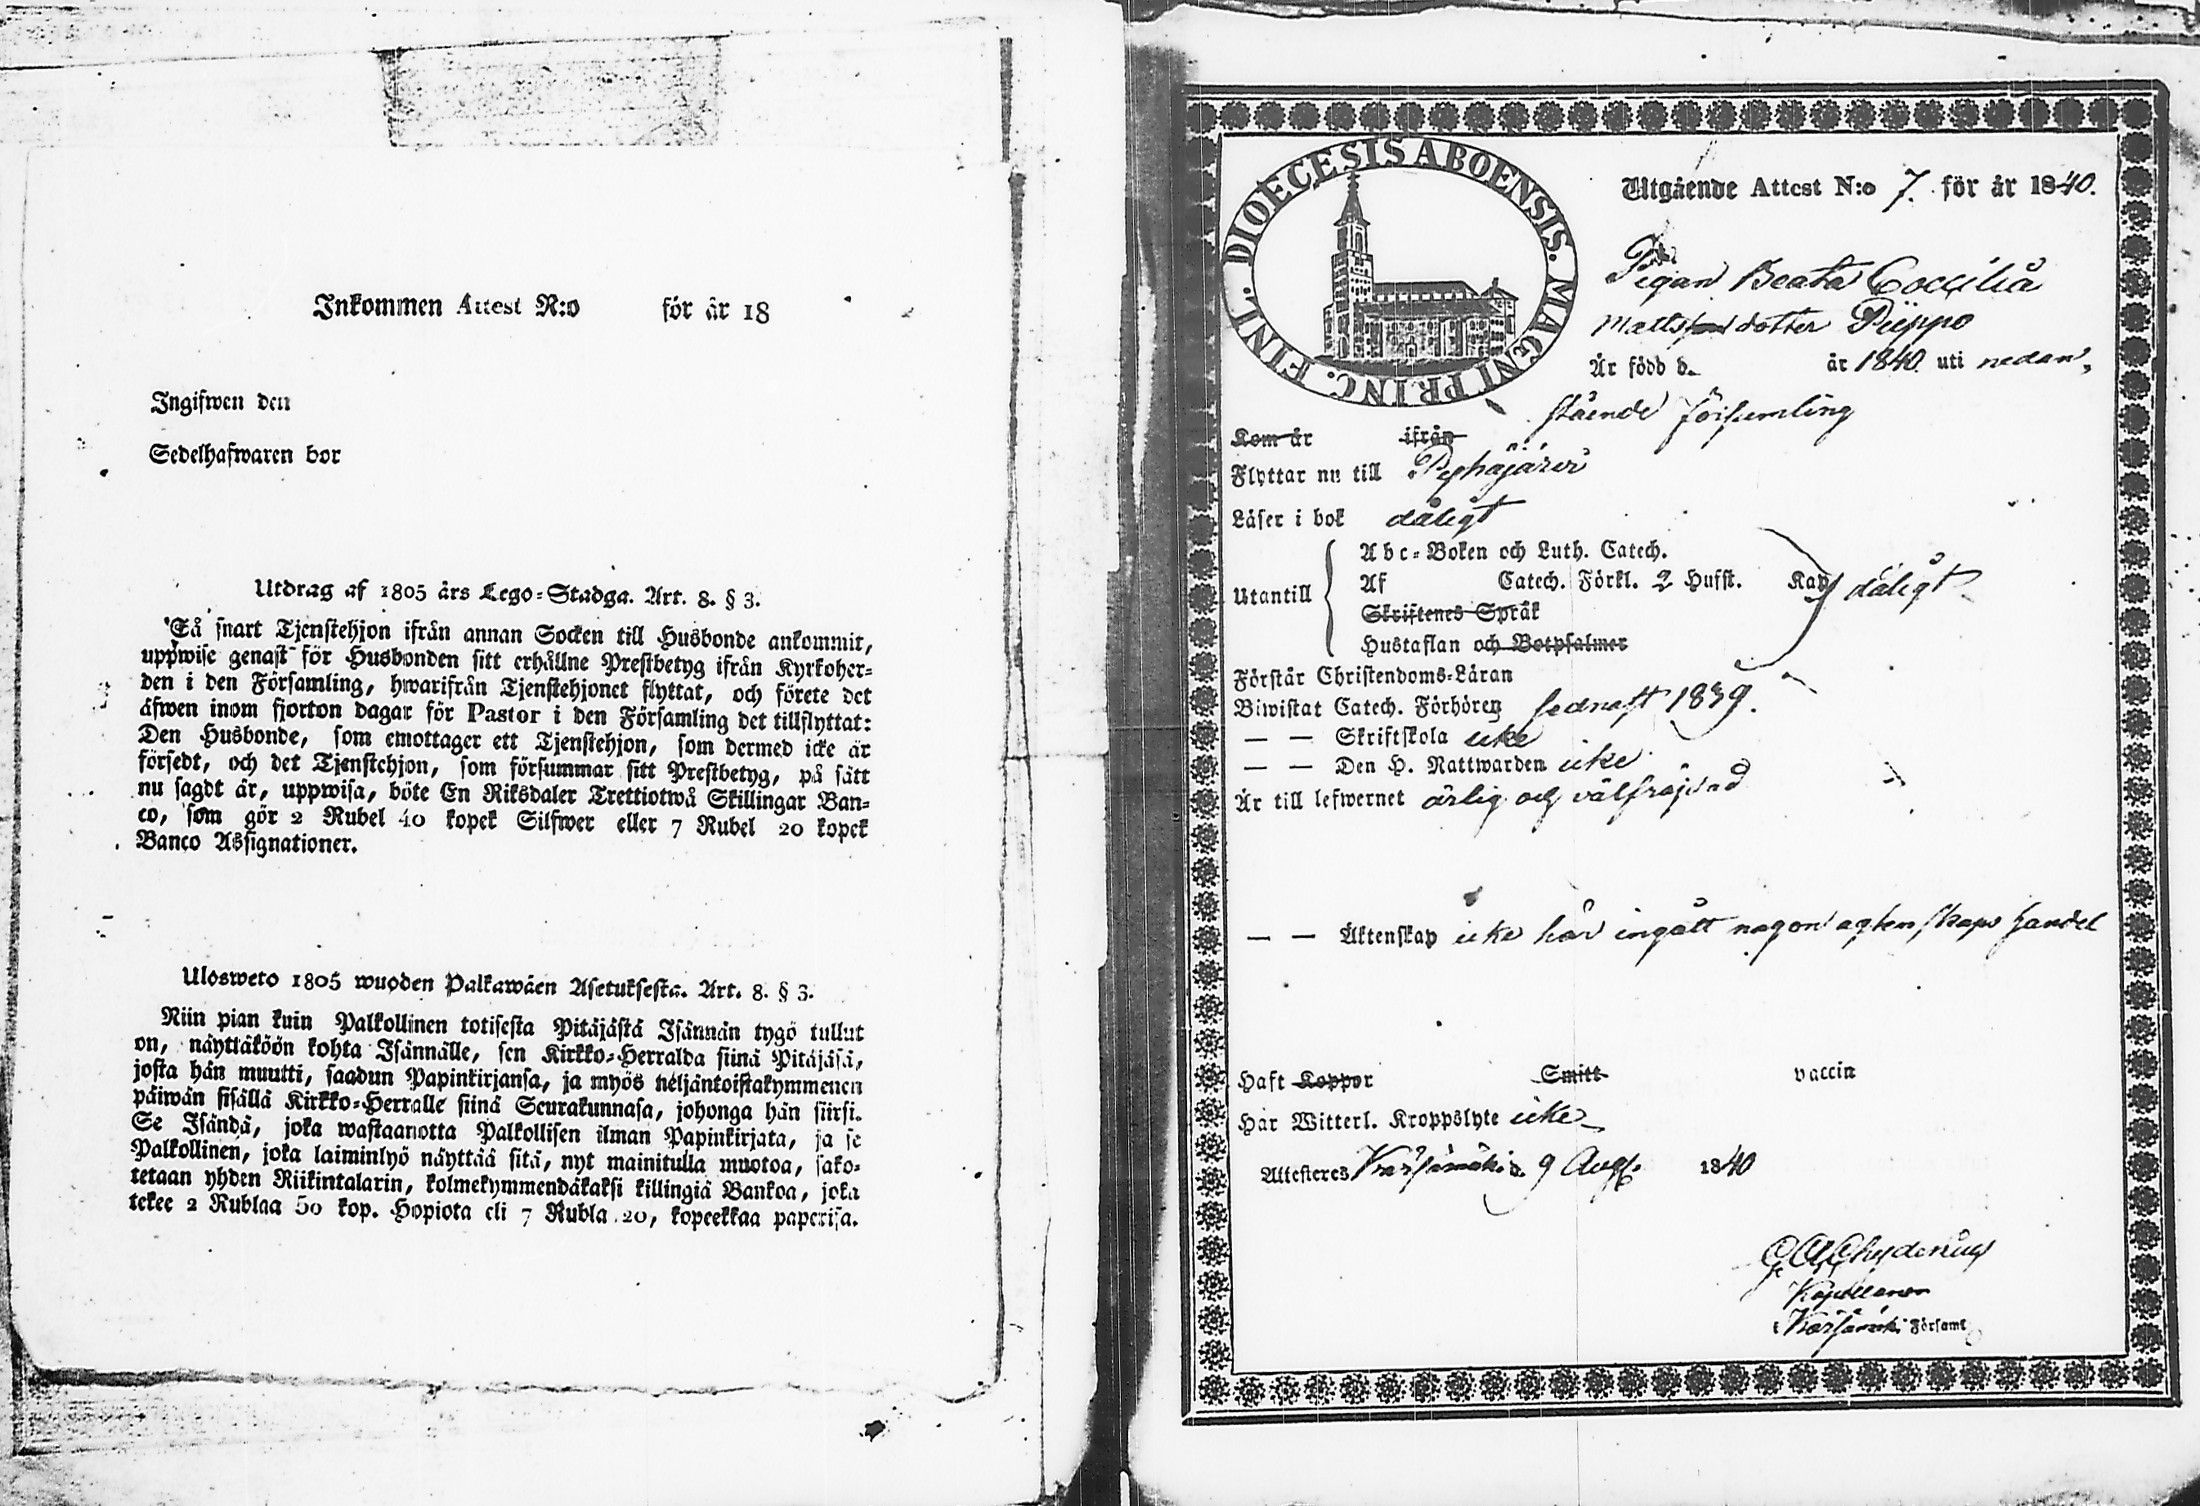 Inkommen Attest N:o för år 18
Ingifwen den
Sedelhafwaren bor
Utdrag af 1805 års Lego=Stadga. Art. 8. § 3.
Så snart Tjenstehjon ifrån annan Socken till Husbonde ankommit,
uppwise genast för Husbonden sitt erhållne Prestbetyg ifrån Kyrkoher=
den i den Församling, hwarifrån Tjenstehjonet flyttat, och förete det
äfwen inom fjorton dagar för Pastor i den Församling det tillflyttat:
Den Husbonde, som emottager ett Tjenstehjon, som dermed icke är
försedt, och det Tjenstehjon, som försummar sitt Prestbetyg, på sätt
nu sagdt är, uppwisa, böte En Riksdaler Trettiotwå Skillingar Ban=
co, som gör 2 Rubel 40 kopek Silfwer eller 7 Rubel 20 kopek
Banco Assignationer.
Ulosweto 1805 wuoden Palkawäen Asetuksesta. Art. 8. § 3.
Niin pian kuin Palkollinen toisesta Pitäjästä Isännän tygö tullut
on, näyttäköön kohta Isännälle, sen Kirkko=Herralda siinä Pitäjäsä,
josta hän muutti, saadun Papinkirjansa, ja myös neljäntoistakymmenen
päiwän sisällä Kirkko=Herralle siinä Seurakunnasa, johonga hän siirsi.
Se Isändä, joka wastaanotta Palkollisen ilman Papinkirjata, ja se
Palkollinen, joka laiminlyö näyttää sitä, nyt mainitulla muotoa, sako=
tetaan yhden Riikintalarin, kolmekymmendäkaksi killingiä Bankoa, joka
tekee 2 Rublaa 50 kop. Hopiota eli 7 Rubla 20, kopeekkaa paperisa.
DIOECESIS ABOENSIS. MAGNI PRINC. FINL.
Utgående Attest N:o 7. för år 1840.
Pigan Beata Coecilia
Matts dotter Piippo
Är född d. år 1840 uti nedan,
stående församling
Kom år ifrån
Flyttar nu till Pyhäjärvi
Läser i bok dåligt
Utantill
Abc=Boken och Luth. Catech.
Af Catech. Förkl. 2 Hufst. Kap dåligt
Skriftenes Språk
Hustaflan och Botpsalmer
Förstår Christendoms=Läran
Biwistat Catech. Förhören sednast 1839.
— — Skriftskola icke
— — Den H. Nattwarden icke
Är till lefwernet ärlig och välfräjdad
— — Äktenskap icke har ingått någon agtenskaps handel
Haft Koppor Smitt vaccin
Har Witterl. Kroppslyte icke
Attesteres Kärsämäki d. 9 Aug. 1840
G A Chydenius
Kapellanen
i Kärsämäki Församl